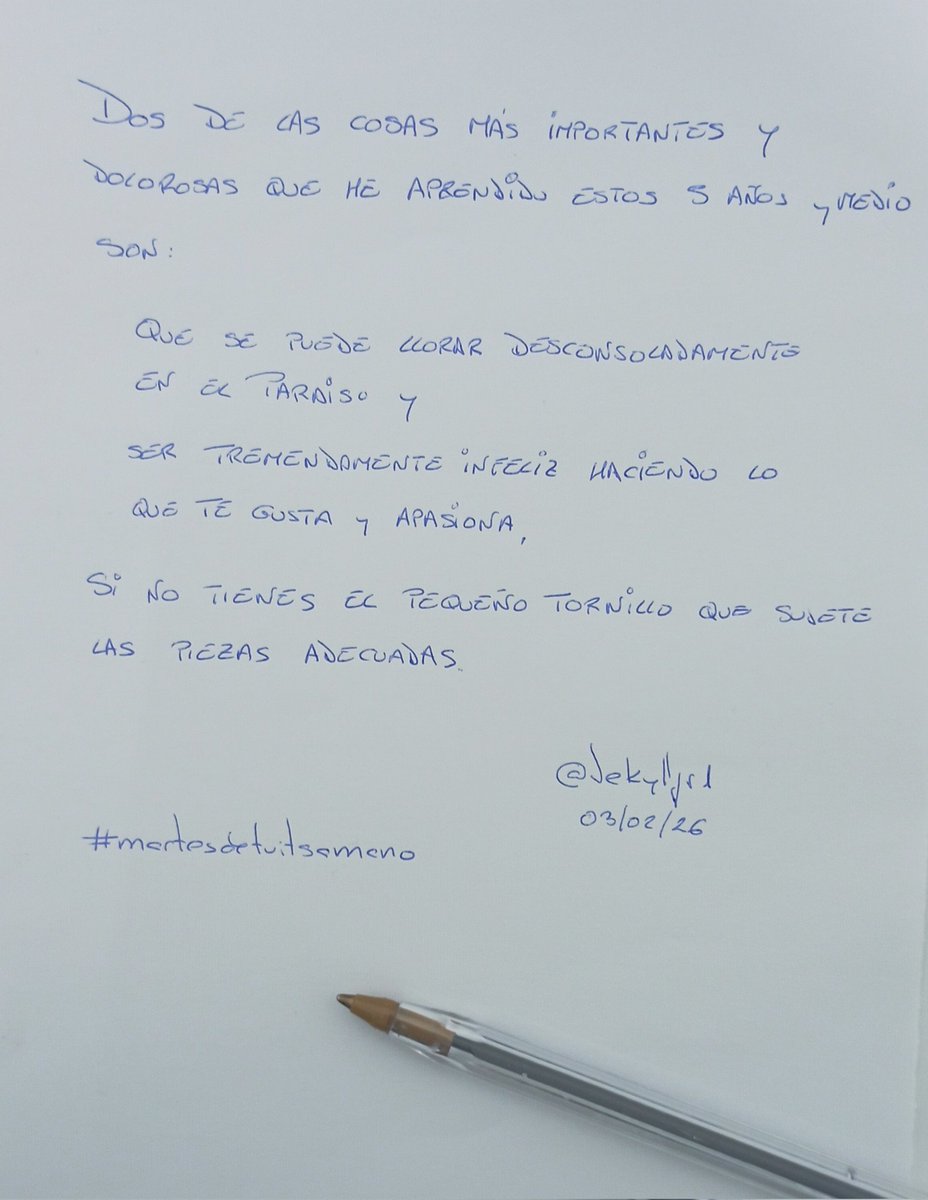 DOS DE LAS COSAS MÁS IMPORTANTES Y
DOLOROSAS QUE HE APRENDIDO ESTOS 5 AÑOS y MEDIO
SON:
QUE SE PUEDE LLORAR DESCONSOLADAMENTE
EN EL PARAISO Y
SER TREMENDAMENTE INFELIZ HACIENDO LO
QUE TE GUSTA y APASIONA,
SI NO TIENES EL PEQUEÑO TORNILLO QUE SUJETE
LAS PIEZAS ADECUADAS.
@Jekylljrl
03/02/26
#martesdetuitsamano